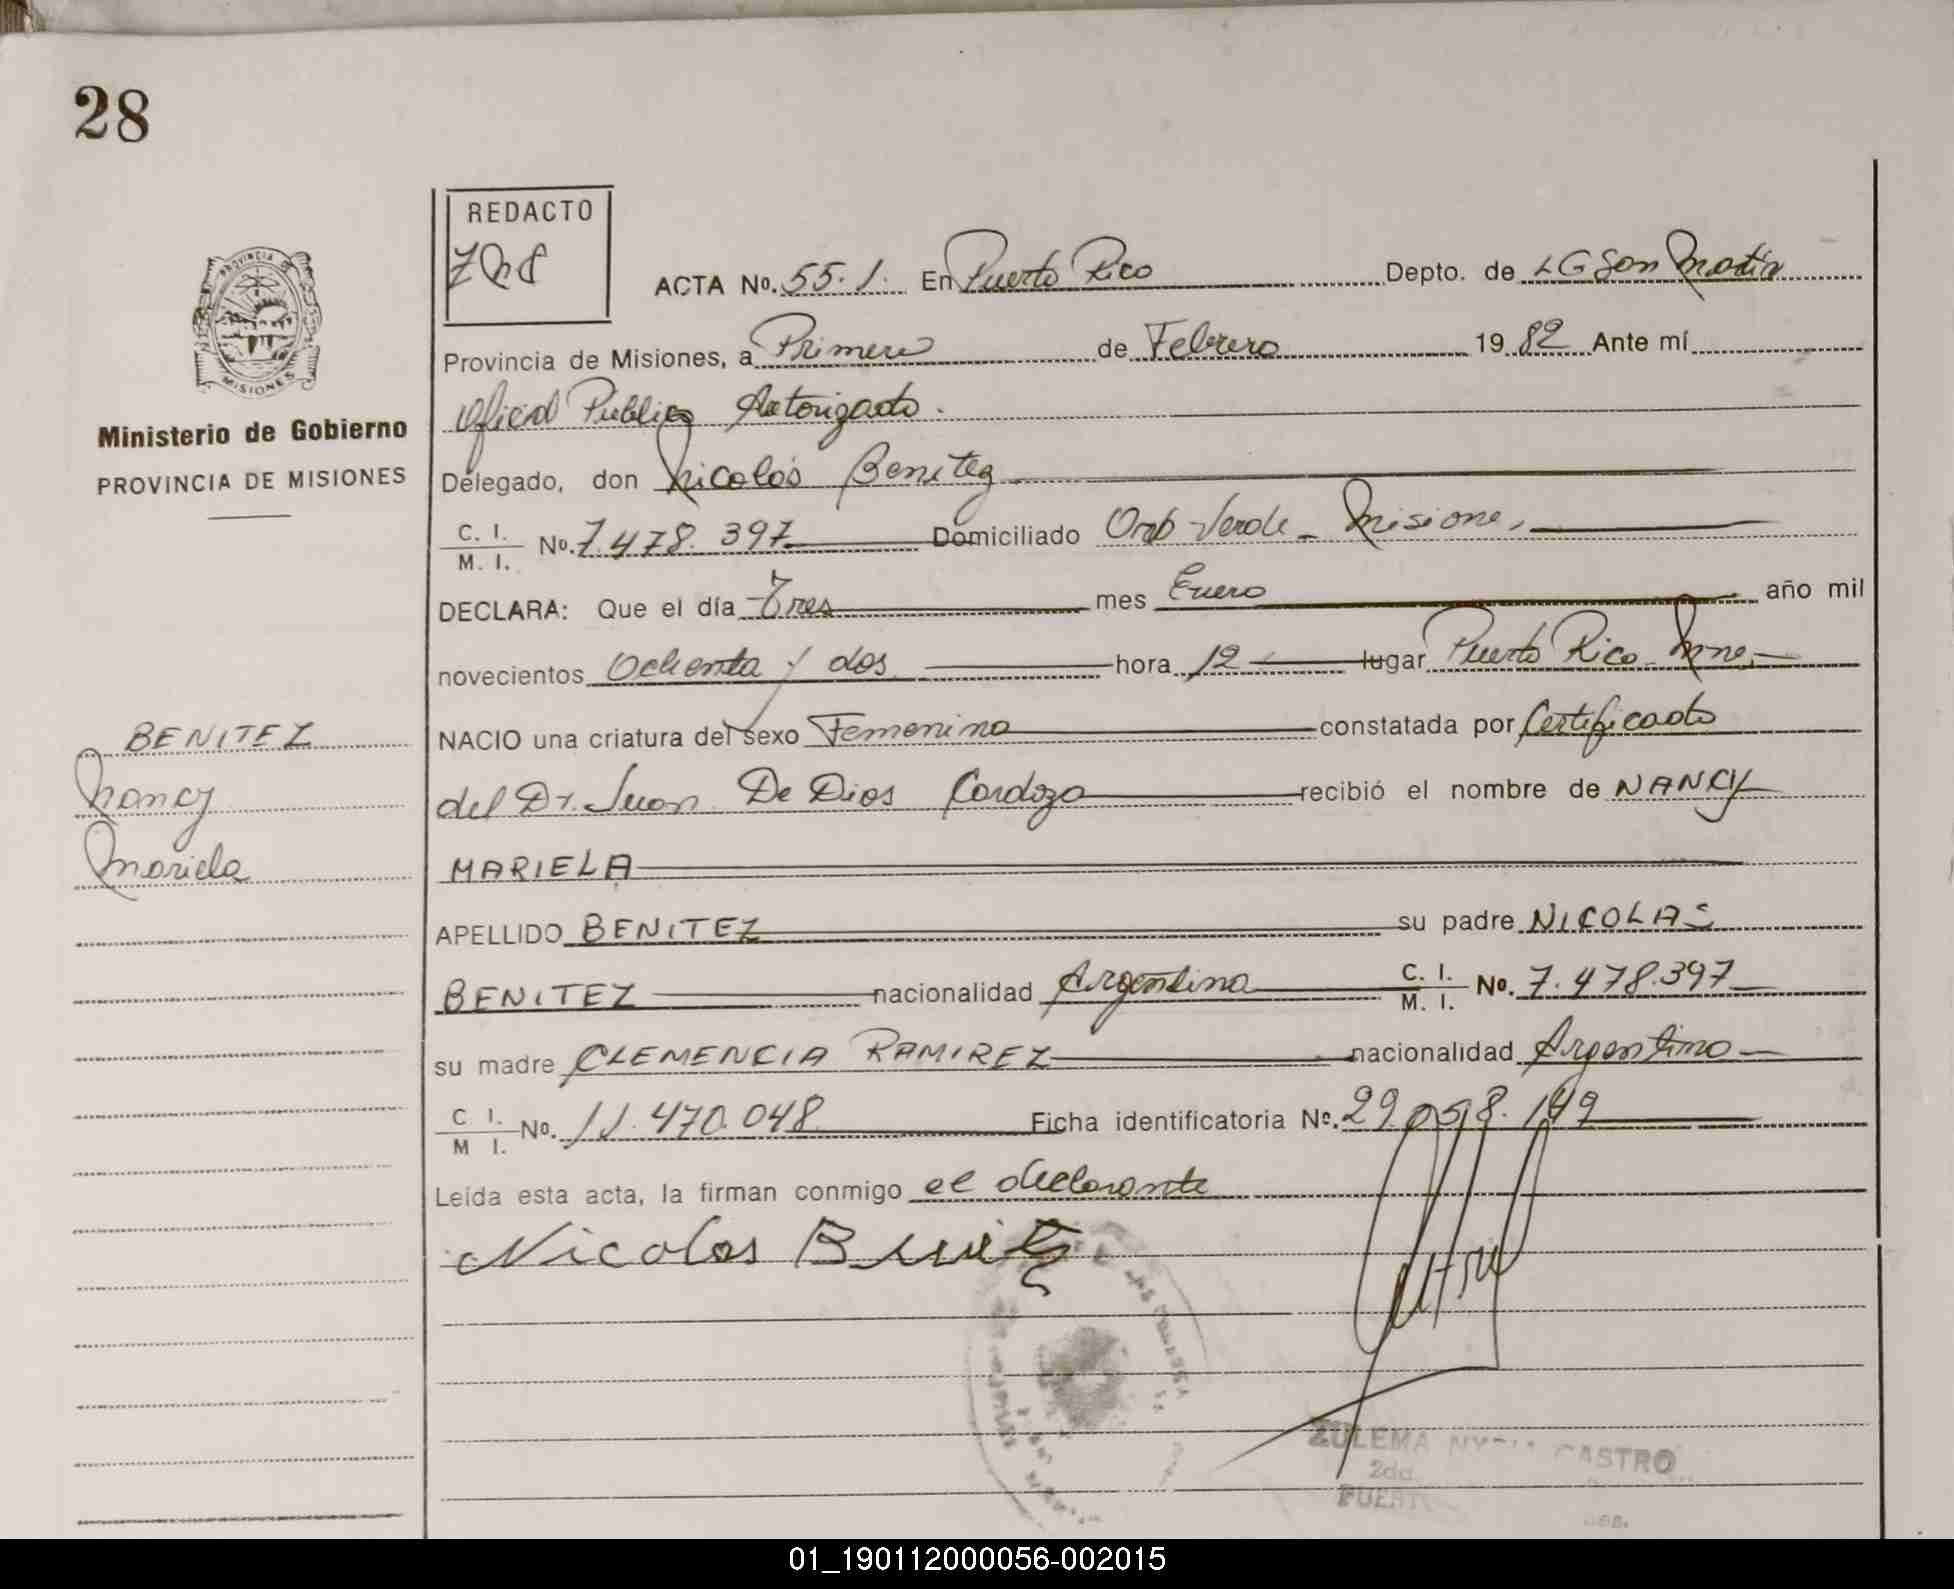 28
REDACTO
ACTA No. 55. I. En Puerto Rico Depto. de LG San Martin
Provincia de Misiones, a Primero de Febrero 19 82 Ante mí
Oficial Publico Autorizado.
Ministerio de Gobierno
PROVINCIA DE MISIONES
Delegado, don Nicolás Benitez
C. I. M. I. No. 7.478.397 Domiciliado Oro Verde - Misiones
DECLARA: Que el día Tres mes Enero año mil
novecientos Ochenta y dos hora 12 lugar Puerto Rico Mnes
BENITEZ
Nancy
Mariela
NACIO una criatura del sexo Femenino constatada por Certificado
del Dr. Juan De Dios Cardozo recibió el nombre de NANCY
MARIELA
APELLIDO BENITEZ su padre NICOLAS
BENITEZ nacionalidad Argentina C. I. M. I. No. 7.478.397
su madre CLEMENCIA RAMIREZ nacionalidad Argentina
C I. M I. No. 11.470.048 Ficha identificatoria No. 29.058.149
Leída esta acta, la firman conmigo el declarante
Nicolas Benitez
ZULEMA CASTRO
01_190112000056-002015